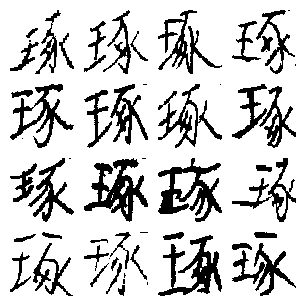 琢琢琢琢
琢琢琢琢
琢琢琢琢
琢琢琢琢